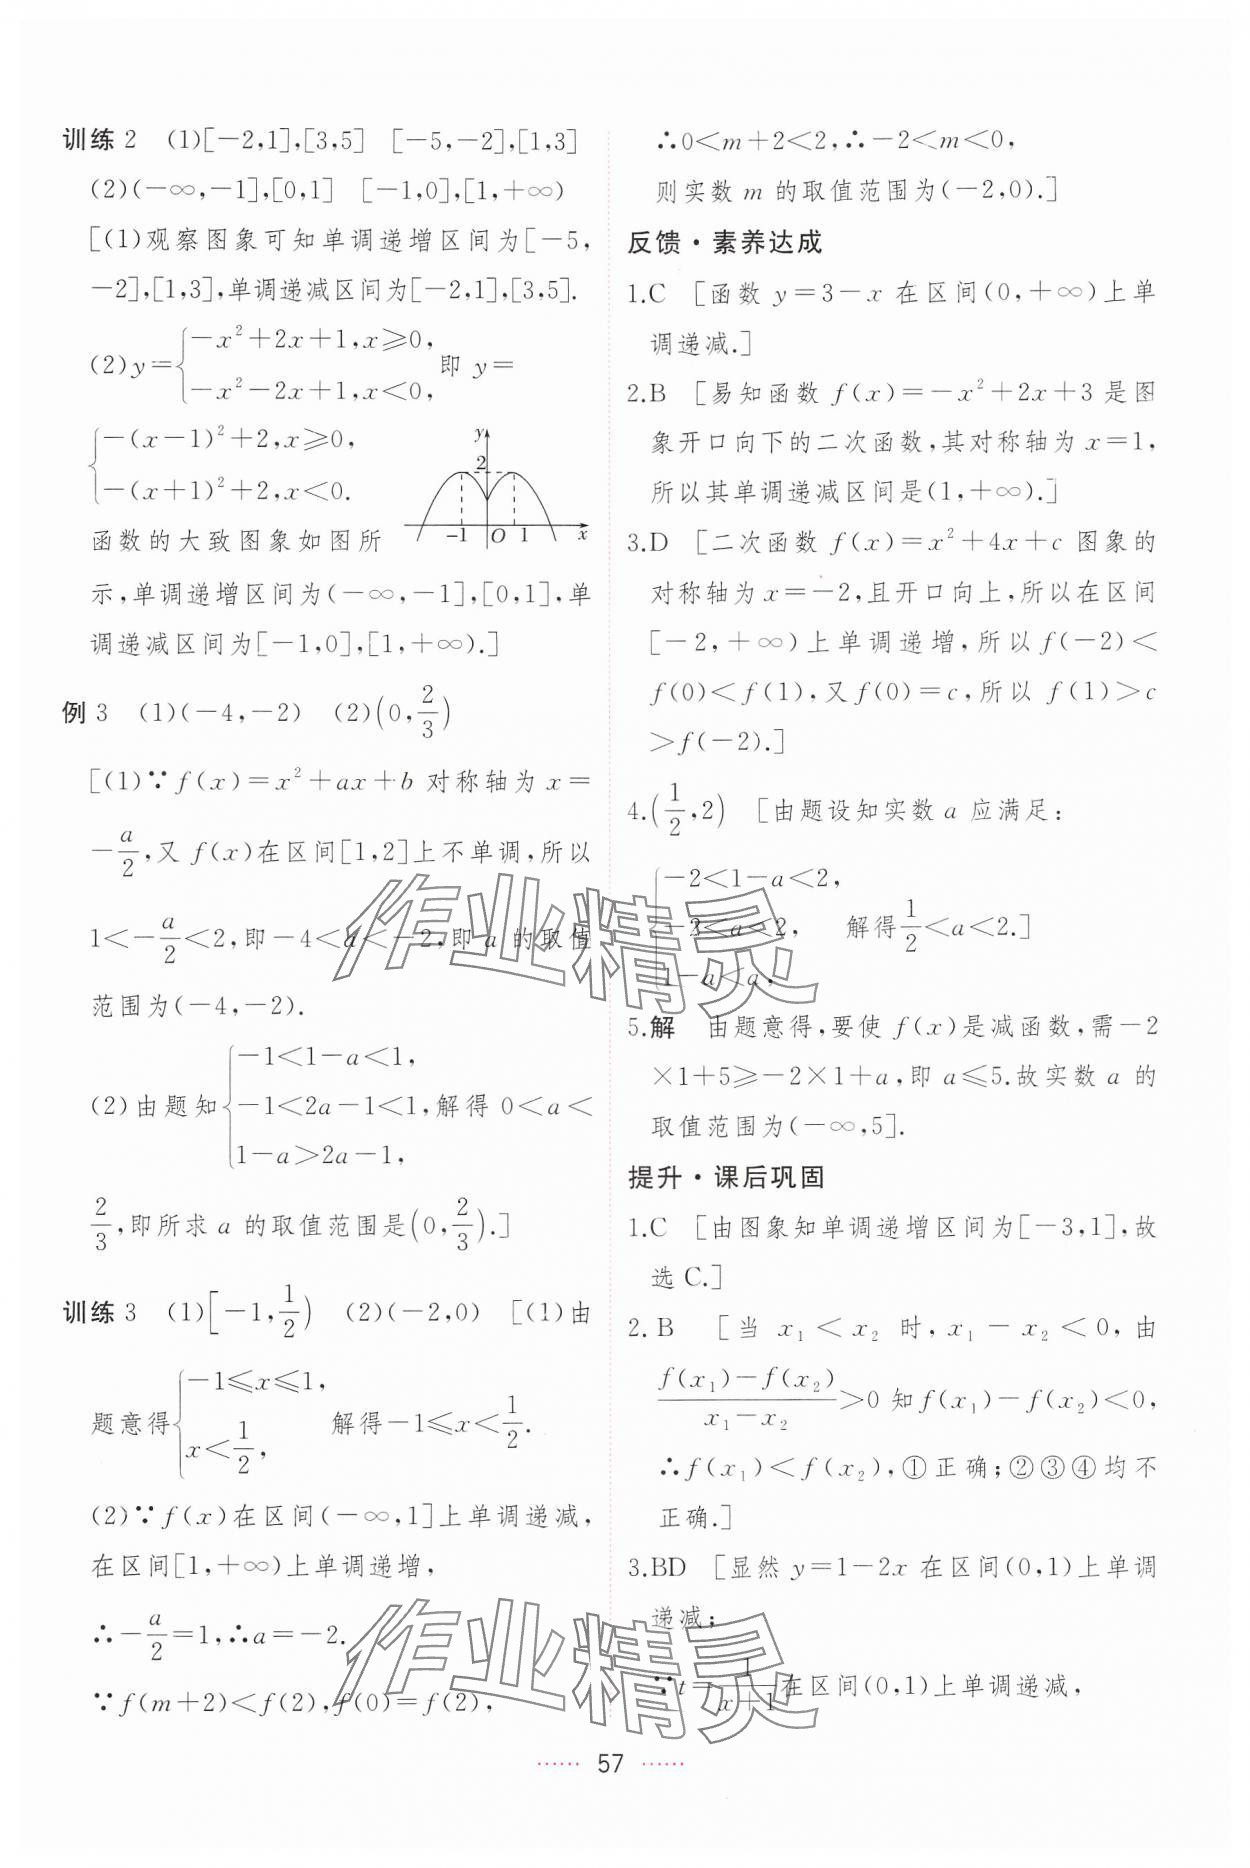 训练2 (1)[－2,1],[3,5] [－5,－2],[1,3]
(2)(－∞,－1],[0,1] [－1,0],[1,＋∞)
[(1)观察图象可知单调递增区间为[－5,
－2],[1,3],单调递减区间为[－2,1],[3,5].
(2)y＝{－x²＋2x＋1,x≥0, －x²－2x＋1,x<0, 即 y＝
{－(x－1)²＋2,x≥0, －(x＋1)²＋2,x<0.
y 2 －1 O 1 x
函数的大致图象如图所
示,单调递增区间为(－∞,－1],[0,1],单
调递减区间为[－1,0],[1,＋∞).]
例3 (1)(－4,－2) (2)(0,2/3)
[(1)∵f(x)＝x²＋ax＋b 对称轴为 x＝
－a/2,又 f(x)在区间[1,2]上不单调,所以
1<－a/2<2,即－4<a<－2,即 a 的取值
范围为(－4,－2).
(2)由题知{－1<1－a<1, －1<2a－1<1, 1－a>2a－1, 解得 0<a<
2/3,即所求 a 的取值范围是(0,2/3).]
训练3 (1)[－1,1/2) (2)(－2,0) [(1)由
题意得{－1≤x≤1, x<1/2, 解得－1≤x<1/2.
(2)∵f(x)在区间(－∞,1]上单调递减,
在区间[1,＋∞)上单调递增,
∴－a/2＝1,∴a＝－2.
∵f(m＋2)<f(2),f(0)＝f(2),
∴0<m＋2<2,∴－2<m<0,
则实数 m 的取值范围为(－2,0).]
反馈·素养达成
1.C [函数 y＝3－x 在区间(0,＋∞)上单
调递减.]
2.B [易知函数 f(x)＝－x²＋2x＋3 是图
象开口向下的二次函数,其对称轴为 x＝1,
所以其单调递减区间是(1,＋∞).]
3.D [二次函数 f(x)＝x²＋4x＋c 图象的
对称轴为 x＝－2,且开口向上,所以在区间
[－2,＋∞)上单调递增,所以 f(－2)<
f(0)<f(1),又 f(0)＝c,所以 f(1)>c
>f(－2).]
4.(1/2,2) [由题设知实数 a 应满足:
{－2<1－a<2, －2<a<2, 1－a<a, 解得1/2<a<2.]
5.解 由题意得,要使 f(x)是减函数,需－2
×1＋5≥－2×1＋a,即 a≤5.故实数 a 的
取值范围为(－∞,5].
提升·课后巩固
1.C [由图象知单调递增区间为[－3,1],故
选C.]
2.B [当 x₁<x₂ 时,x₁－x₂<0,由
(f(x₁)－f(x₂))/(x₁－x₂)>0 知 f(x₁)－f(x₂)<0,
∴f(x₁)<f(x₂),①正确;②③④均不
正确.]
3.BD [显然 y＝1－2x 在区间(0,1)上单调
递减;
∵t＝1/(x＋1)在区间(0,1)上单调递减,
57
作业精灵
作业精灵